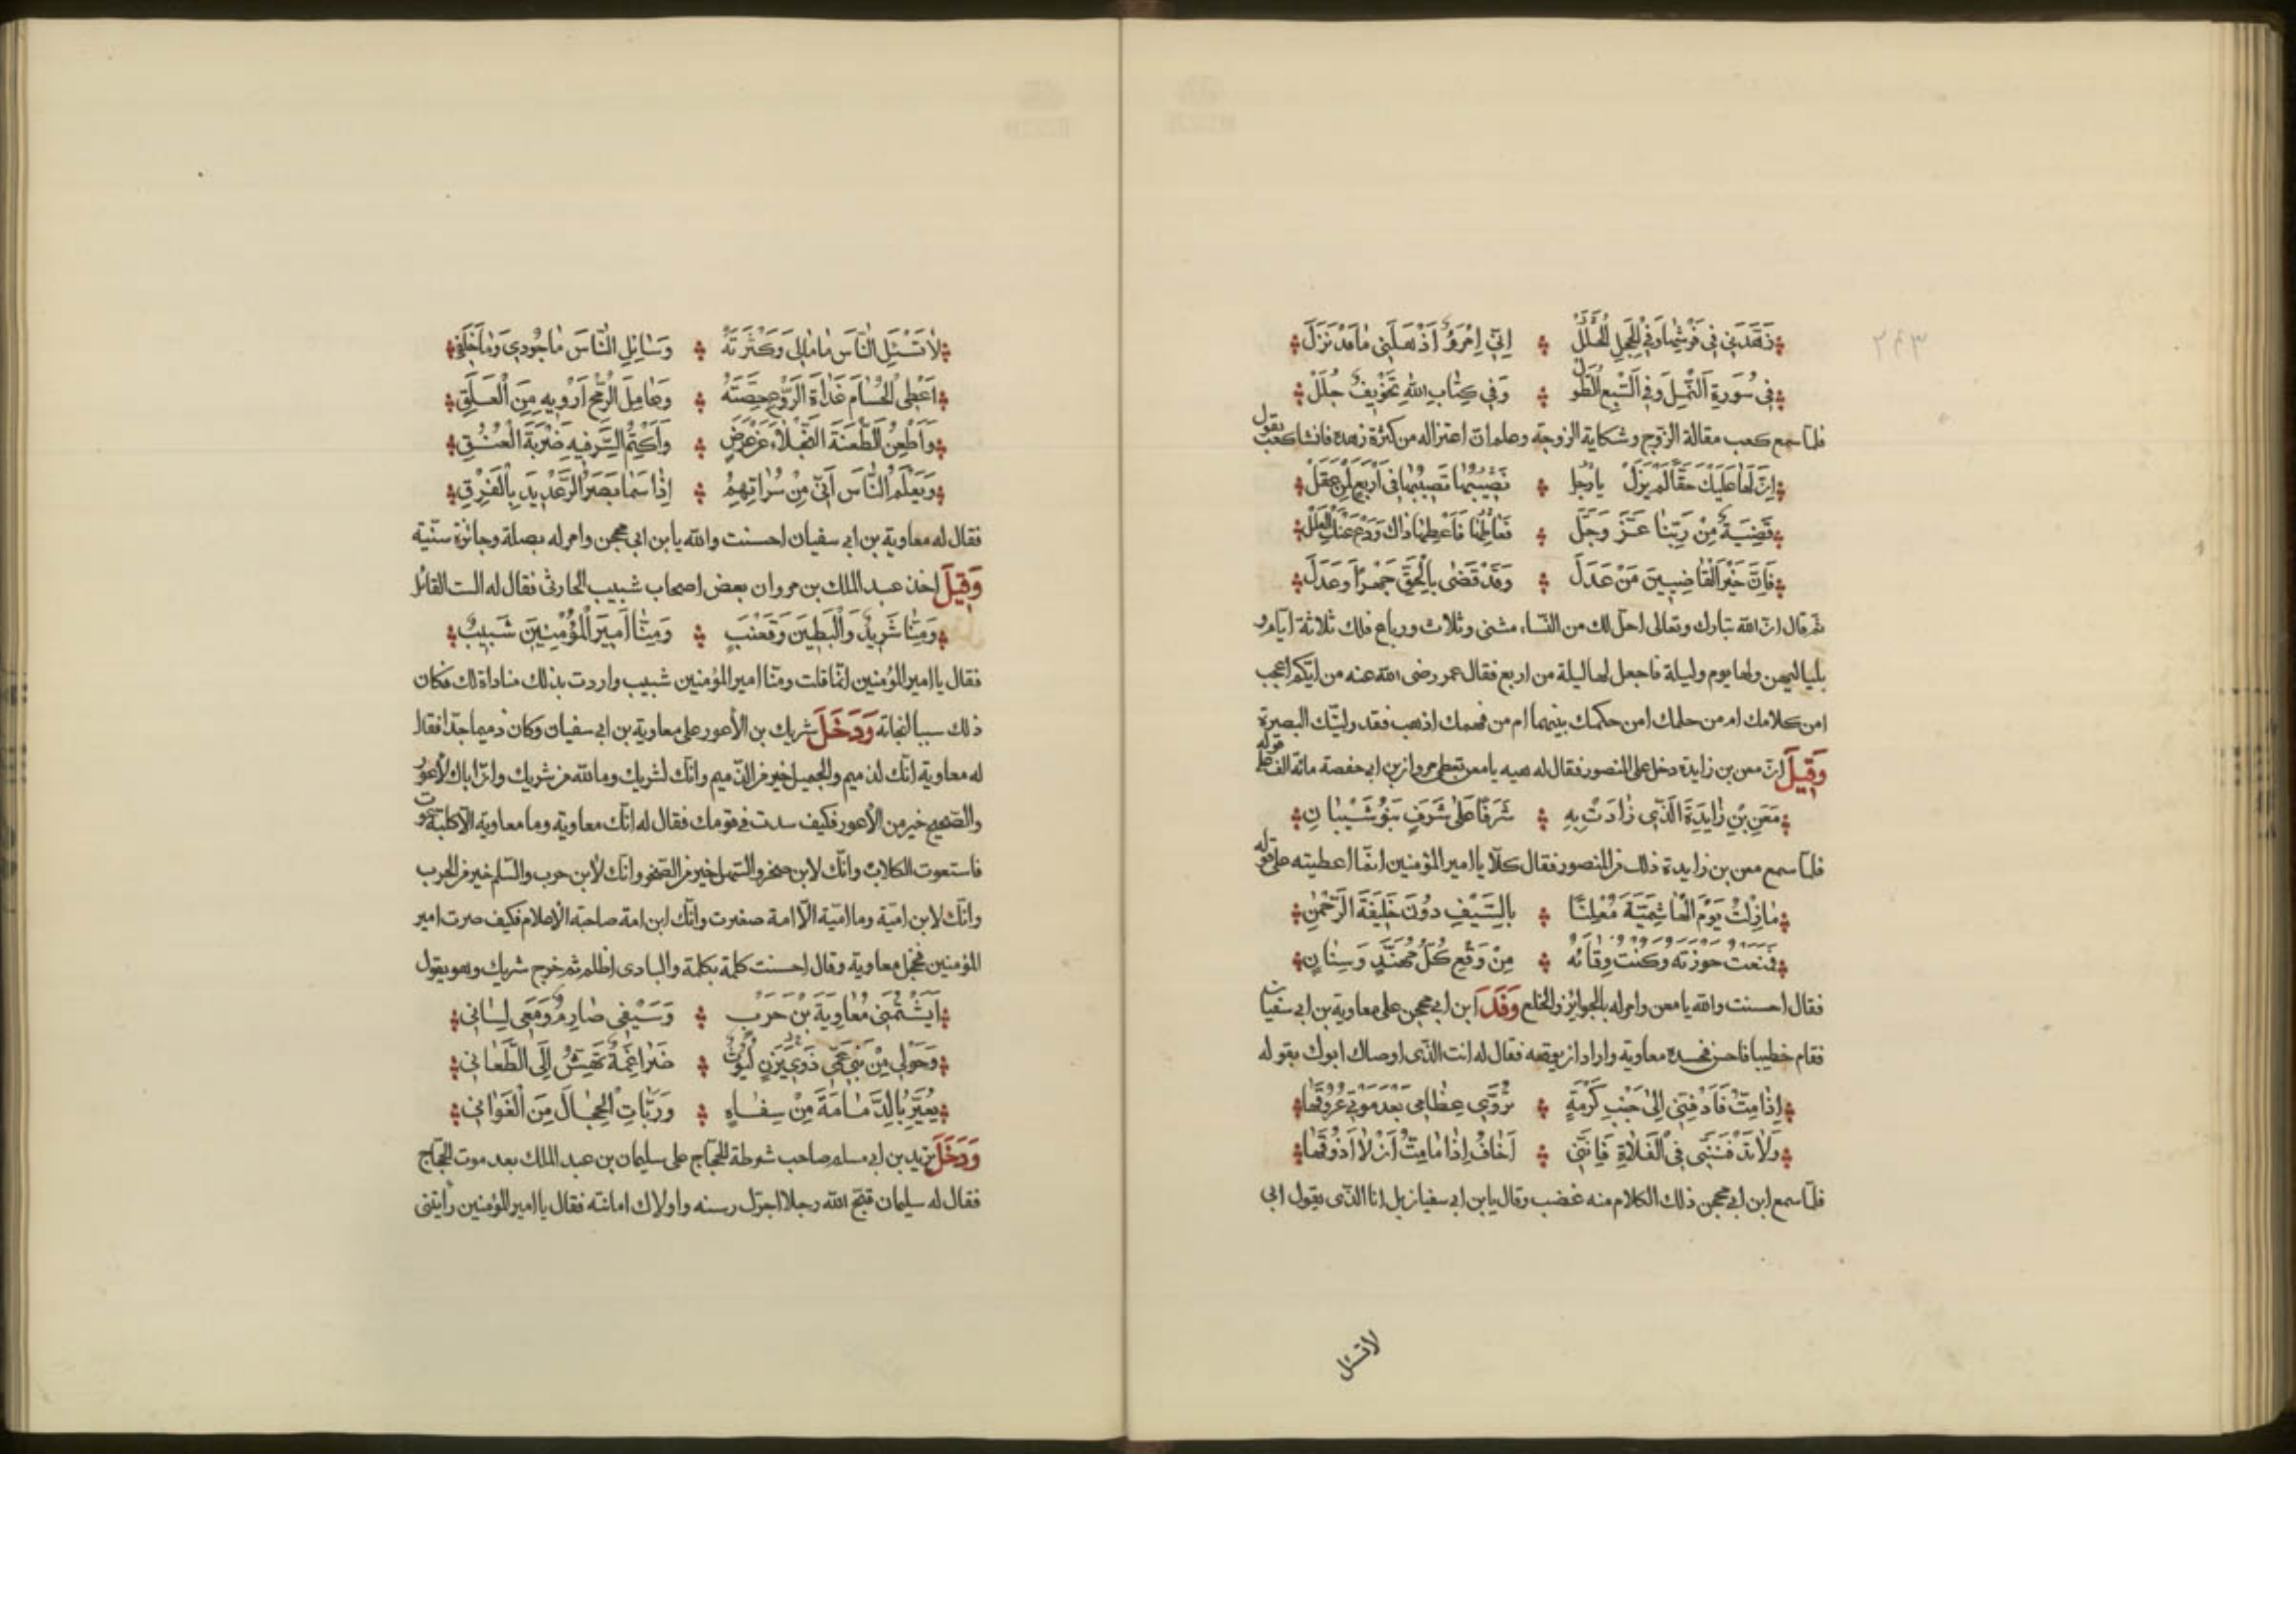 ٢٤٣
زَهَّدَنِي فِي فَرْشِهَا وَفِي الْحَجَلِ الْحُلَلْ ۞ اِنِّي اِمْرُؤٌ اَذْهَلَنِي مَا قَدْ نَزَلَ
فِي سُورَةِ النَّمْلِ وَفِي السَّبْعِ الطُّوَلْ ۞ وَفِي كِتَابِ اللهِ تَخْوِيفٌ جُلَلْ
فلما سمع كعب مقالة الزوج وشكاية الزوجة وعلم ان اعتزاله من كثرة زهده فانشا كعب يقول
اِنَّ لَهَا عَلَيْكَ حَقًّا لَمْ يَزَلْ يَا رَجُلُ ۞ نَصِيبُهَا تَصِيبُهَا فِي اَرْبَعٍ لِمَنْ عَقَلْ
قَضِيَّةٌ مِنْ رَبِّنَا عَزَّ وَجَلَّ ۞ فَعَاطِهَا فَاَعْطِهَا ذَاكَ وَدَعْ عَنْكَ الْعِلَلْ
فَاِنَّ خَيْرَ الْقَاضِيِينَ مَنْ عَدَلَ ۞ وَقَدْ قَضٰى بِالْحَقِّ جَهْرًا وَعَدَلَ
ثم قال ان الله تبارك وتعالى احل لك من النساء مثنى وثلاث ورباع فلك ثلاثة ايام و
بلياليهن ولها يوم وليلة فاجعل لها ليلة من اربع فقال عمر رضى الله عنه من ايكم اعجب
امن كلامك ام من حلمك امن حكمك بينهما ام من فهمك اذهب فقد وليتك البصرة
وَقِيلَ ان معن بن زايدة دخل على المنصور فقال له هيه يا معن تعطى مروان بن ابى حفصة مائة الف على قوله
مَعْنِ بْنِ زَايِدَةَ الَّذِي زَادَتْ بِهِ ۞ شَرَفًا عَلٰى شَرَفٍ بَنُو شَيْبَانِ
فلما سمع معن بن زايدة ذلك من المنصور فقال كلا يا امير المؤمنين انما اعطيته على قوله
مَا زِلْتُ يَوْمَ الْهَاشِمِيَّةَ مُعْلِنًا ۞ بِالسَّيْفِ دُونَ خَلِيفَةَ الرَّحْمٰنِ
فَمَنَعْتَ حَوْزَتَهُ وَكُنْتَ وِقَائَهُ ۞ مِنْ وَقْعِ كُلِّ مُهَنَّدٍ وَسِنَانٍ
فقال احسنت والله يا معن وامر له بالجوايز والخلع وَفَدَ ابن ابى محجن على معاوية بن ابى سفيان
فقام خطيبا فاحسن فحسده معاوية واراد ان يوقعه فقال له انت الذى اوصاك ابوك بقوله
اِذَا مِتُّ فَادْفِنِّي اِلٰى جَنْبِ كَرْمَةٍ ۞ تُرَوِّي عِظَامِي بَعْدَ مَوْتِي عُرُوقُهَا
وَلَا تَدْفِنَنِّي فِي الْفَلَاةِ فَاِنَّنِي ۞ اَخَافُ اِذَا مَا مِتُّ اَنْ لَا اَذُوقُهَا
فلما سمع ابن ابى محجن ذلك الكلام منه غضب وقال يا بن ابى سفيان بل انا الذى يقول ابى
لا تسئل
لَا تَسْئَلِ النَّاسَ مَا مَالِي وَكَثْرَتَهُ ۞ وَسَائِلِ النَّاسَ مَا جُودِي وَمَا خُلُقِي
اُعْطِى الْحُسَامَ غَدَاةَ الرَّوْعِ حِصَّتَهُ ۞ وَعَامِلَ الرُّمْحِ اَرْوِيهِ مِنَ الْعَلَقِ
وَاَطْعِنُ الطَّعْنَةَ النَّجْلَاءَ عَنْ عَرَضٍ ۞ وَاَكْتُمُ السِّرَّ فِيهِ ضَرْبَةَ الْعُنُقِ
وَيَعْلَمُ النَّاسَ اَنِّي مِنْ سُرَاتِهِمْ ۞ اِذَا سَمَا بَصَرُ الرِّعْدِيدِ بِالْفَرَقِ
فقال له معاوية بن ابى سفيان احسنت والله يا بن ابى محجن وامر له بصلة وجائزة سنية
وَقِيلَ اخذ عبد الملك بن مروان بعض اصحاب شبيب الحارثى فقال له الست القائل
وَمِنَّا شَرِيدٌ وَالْبَطِينَ وَقَعْنَبٍ ۞ وَمِنَّا اَمِيرَ الْمُؤْمِنِينَ شَبِيبٌ
فقال يا امير المؤمنين انما قلت ومنا امير المؤمنين شبيب واردت بذلك مناداة لك فكان
ذلك سببا لنجاته وَدَخَلَ شريك بن الأعور على معاوية بن ابى سفيان وكان دميما جدا فقال
له معاوية انك لدميم والجميل خير من الدميم وانك لشريك وما لله من شريك وان اباك لأعور
والصحيح خير من الأعور فكيف سدت فى قومك فقال له انك معاوية وما معاوية الا كلبة عوت
فاستعوت الكلاب وانك لابن صخر والسهل خير من الصخر وانك لأبن حرب والسلم خير من الحرب
وانك لابن امية وما امية الا امة صغرت وانك ابن امة صاحبة الأعلام فكيف صرت امير
المؤمنين فخجل معاوية وقال احسنت كلمة بكلمة والبادى اظلم ثم خرج شريك وهو يقول
اَيَشْتُمُنِي مُعَاوِيَةُ بْنُ حَرْبٍ ۞ وَسَيْفِي صَارِمٌ وَمَعِي لِسَانِي
وَحَوْلِي مِنْ بَنِي عَمِّي ذَوِي يَزَنٍ لُيُوثٌ ۞ ضَرَاغِمَةٌ تَهَشُّ اِلَى الطَّعَانِ
يُعَيِّرُ بِالدَّمَامَةَ مِنْ سِفَاهٍ ۞ وَرَبَّاتِ الْحِجَالَ مِنَ الْغَوَانِي
وَدَخَلَ يزيد بن ابى مسلم صاحب شرطة الحجاج على سليمان بن عبد الملك بعد موت الحجاج
فقال له سليمان قبح الله رجلا اجرّك رسنه واولاك امانته فقال يا امير المؤمنين رأيتنى